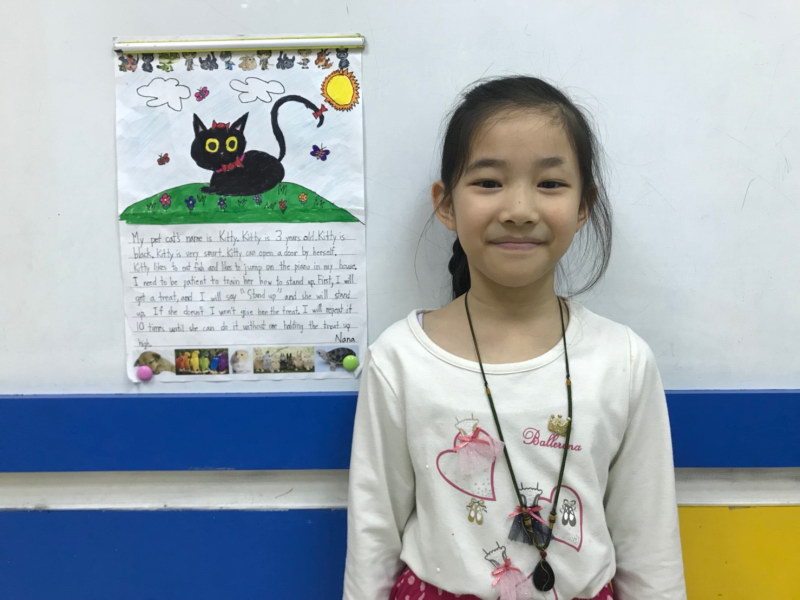 My pet cat's name is Kitty. Kitty is 3 years old. Kitty is
black. Kitty is very smart. Kitty can open a door by herself.
Kitty likes to eat fish and like to jump on the piano in my house.
I need to be patient to train her how to stand up. First, I will
get a treat, and I will say "Stand up" and she will stand
up. If she doesn't I won't give her the treat. I will repeat it
10 times until she can do it without me holding the treat up
high.
Nana
Ballerina